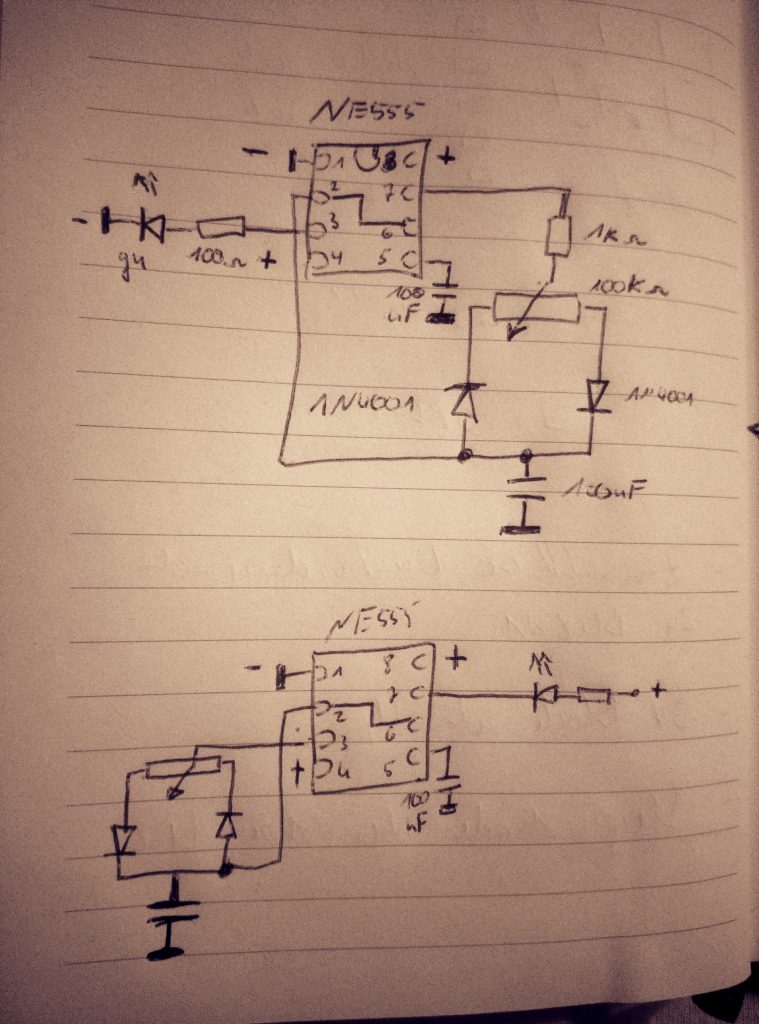 NE555
- 1 8 +
2 7
- 3 6
4 5
100Ω +
1KΩ
100KΩ
100
nF
1N4001 1N4001
100nF
NE555
- 1 8 +
2 7
3 6 +
+ 4 5
100
nF